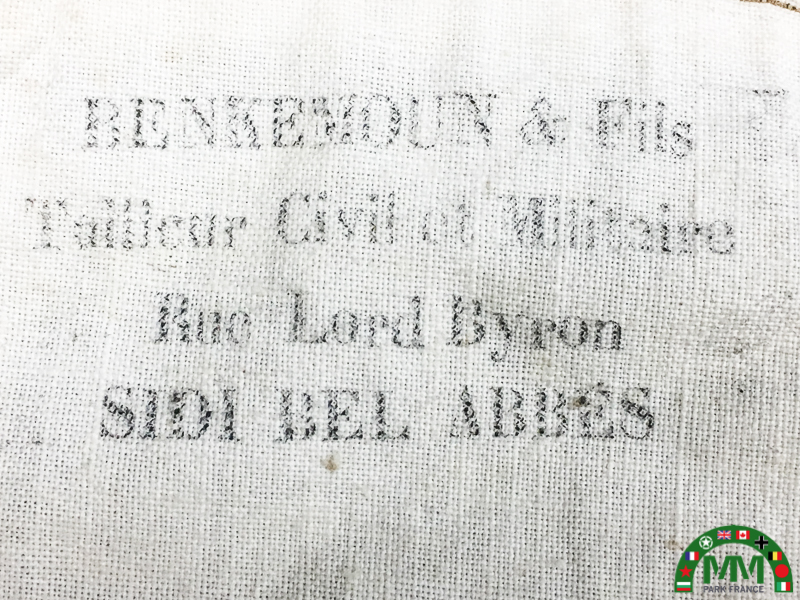 BENKEMOUN & Fils
Tailleur Civil et Militaire
Rue Lord Byron
SIDI BEL ABBÈS
MM
PARK FRANCE